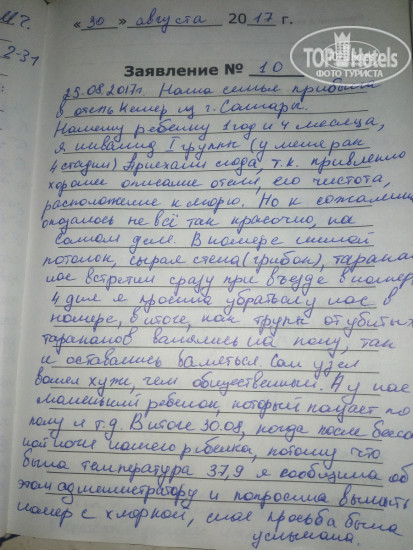 М2.
2-31
« 30 » августа 2017 г.
TOPHotels
ФОТО ТУРИСТА
Заявление № 10
25.08.2017г. Наша семья прибыла
в отель Кемер из г. Самары.
Нашему ребенку 1 год и 4 месяца,
я инвалид I группы (у меня рак
4 стадии) Приехали сюда, т.к. привлекло
хорошее описание отеля, его чистота,
расположение к морю. Но к сожалению
оказалось не всё так красочно, на
самом деле. В номере гнилой
потолок, сырая стена (грибок), таракан
нас встретили сразу при въезде в номер
4 дня я просила убраться у нас в
номере, в итоге, как трупы от убитых
тараканов валялись на полу, так
и оставались валяться. Сан узел
воняет хуже, чем общественный. А у нас
маленький ребенок, который ползает по
полу и т.д. В итоге 30.08, когда после бессо
ной ночи нашего ребенка, потому что
была температура 37,9 я сообщила об
этом администратору и попросила вымыть
номер с хлоркой, моя просьба была
услышана.